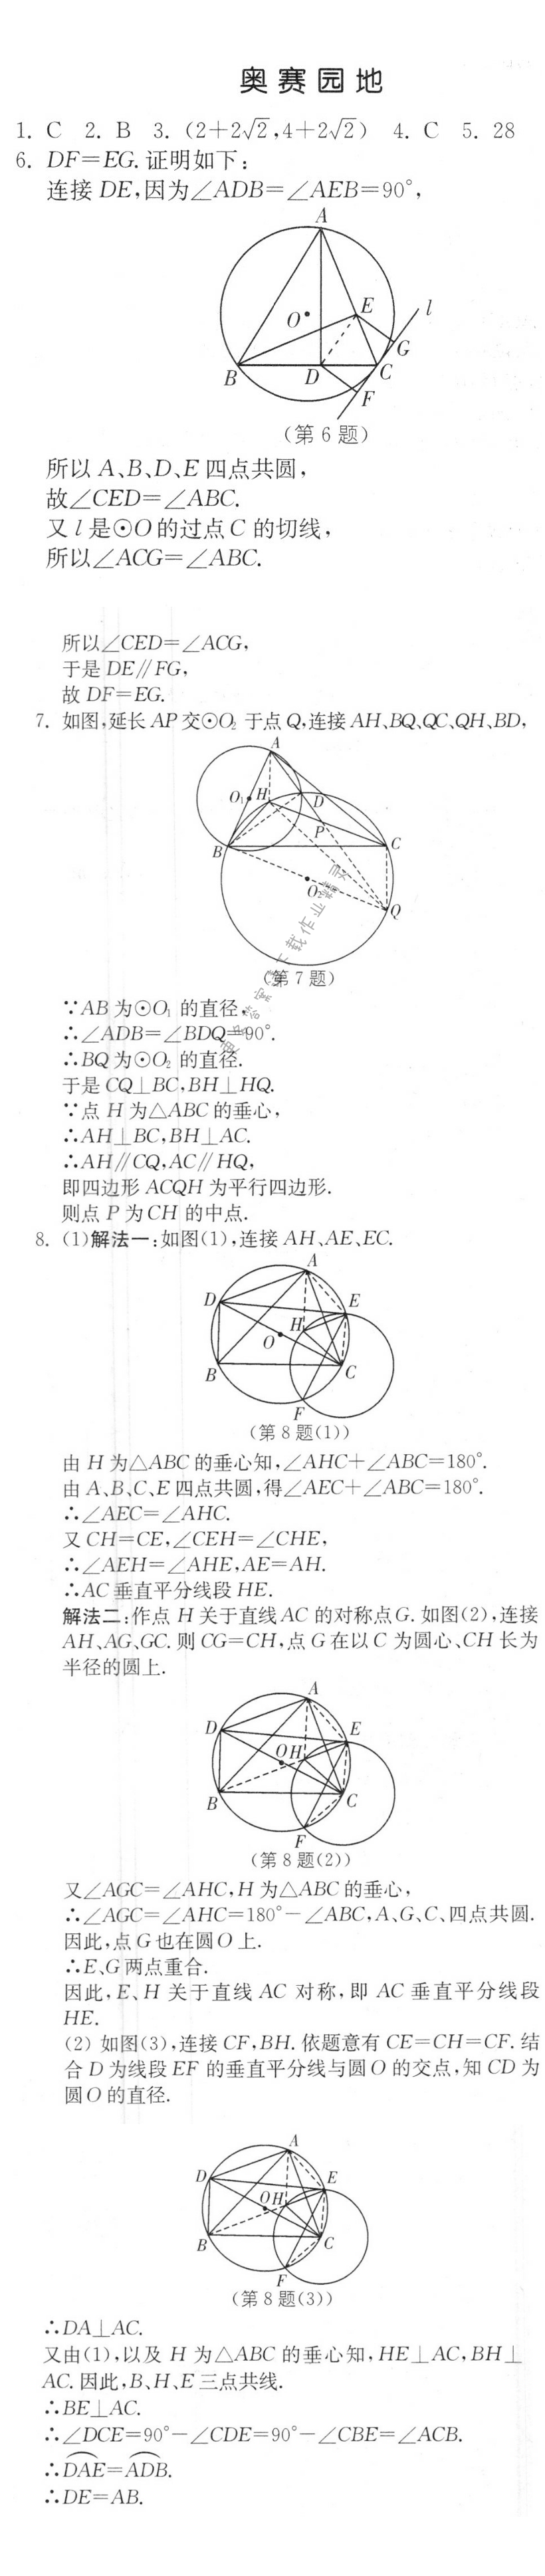 奥赛园地
1. C 2. B 3. (2+2√2,4+2√2) 4. C 5. 28
6. DF=EG. 证明如下：
连接 DE,因为∠ADB=∠AEB=90°,
A
E
l
O
G
B
D
C
F
(第 6 题)
所以 A、B、D、E 四点共圆,
故∠CED=∠ABC.
又 l 是⊙O 的过点 C 的切线,
所以∠ACG=∠ABC.
所以∠CED=∠ACG,
于是 DE∥FG,
故 DF=EG.
7. 如图,延长 AP 交⊙O₂ 于点 Q,连接 AH、BQ、QC、QH、BD,
A
O₁ H D
P
B C
O₂
Q
(第 7 题)
∵AB 为⊙O₁ 的直径,
∴∠ADB=∠BDQ=90°.
∴BQ 为⊙O₂ 的直径.
于是 CQ⊥BC,BH⊥HQ.
∵点 H 为△ABC 的垂心,
∴AH⊥BC,BH⊥AC.
∴AH∥CQ,AC∥HQ,
即四边形 ACQH 为平行四边形.
则点 P 为 CH 的中点.
8. (1)解法一：如图(1),连接 AH、AE、EC.
A
D E
H
O
B C
F
(第 8 题(1))
由 H 为△ABC 的垂心知,∠AHC+∠ABC=180°.
由 A、B、C、E 四点共圆,得∠AEC+∠ABC=180°.
∴∠AEC=∠AHC.
又 CH=CE,∠CEH=∠CHE,
∴∠AEH=∠AHE,AE=AH.
∴AC 垂直平分线段 HE.
解法二：作点 H 关于直线 AC 的对称点 G. 如图(2),连接
AH、AG、GC. 则 CG=CH,点 G 在以 C 为圆心、CH 长为
半径的圆上.
A
D E
O H
B C
F
(第 8 题(2))
又∠AGC=∠AHC,H 为△ABC 的垂心,
∴∠AGC=∠AHC=180°−∠ABC,A、G、C、四点共圆.
因此,点 G 也在圆 O 上.
∴E、G 两点重合.
因此,E、H 关于直线 AC 对称,即 AC 垂直平分线段
HE.
(2) 如图(3),连接 CF,BH. 依题意有 CE=CH=CF. 结
合 D 为线段 EF 的垂直平分线与圆 O 的交点,知 CD 为
圆 O 的直径.
A
D E
O H
B C
F
(第 8 题(3))
∴DA⊥AC.
又由(1),以及 H 为△ABC 的垂心知,HE⊥AC,BH⊥
AC. 因此,B、H、E 三点共线.
∴BE⊥AC.
∴∠DCE=90°−∠CDE=90°−∠CBE=∠ACB.
∴DAE=ADB.
∴DE=AB.